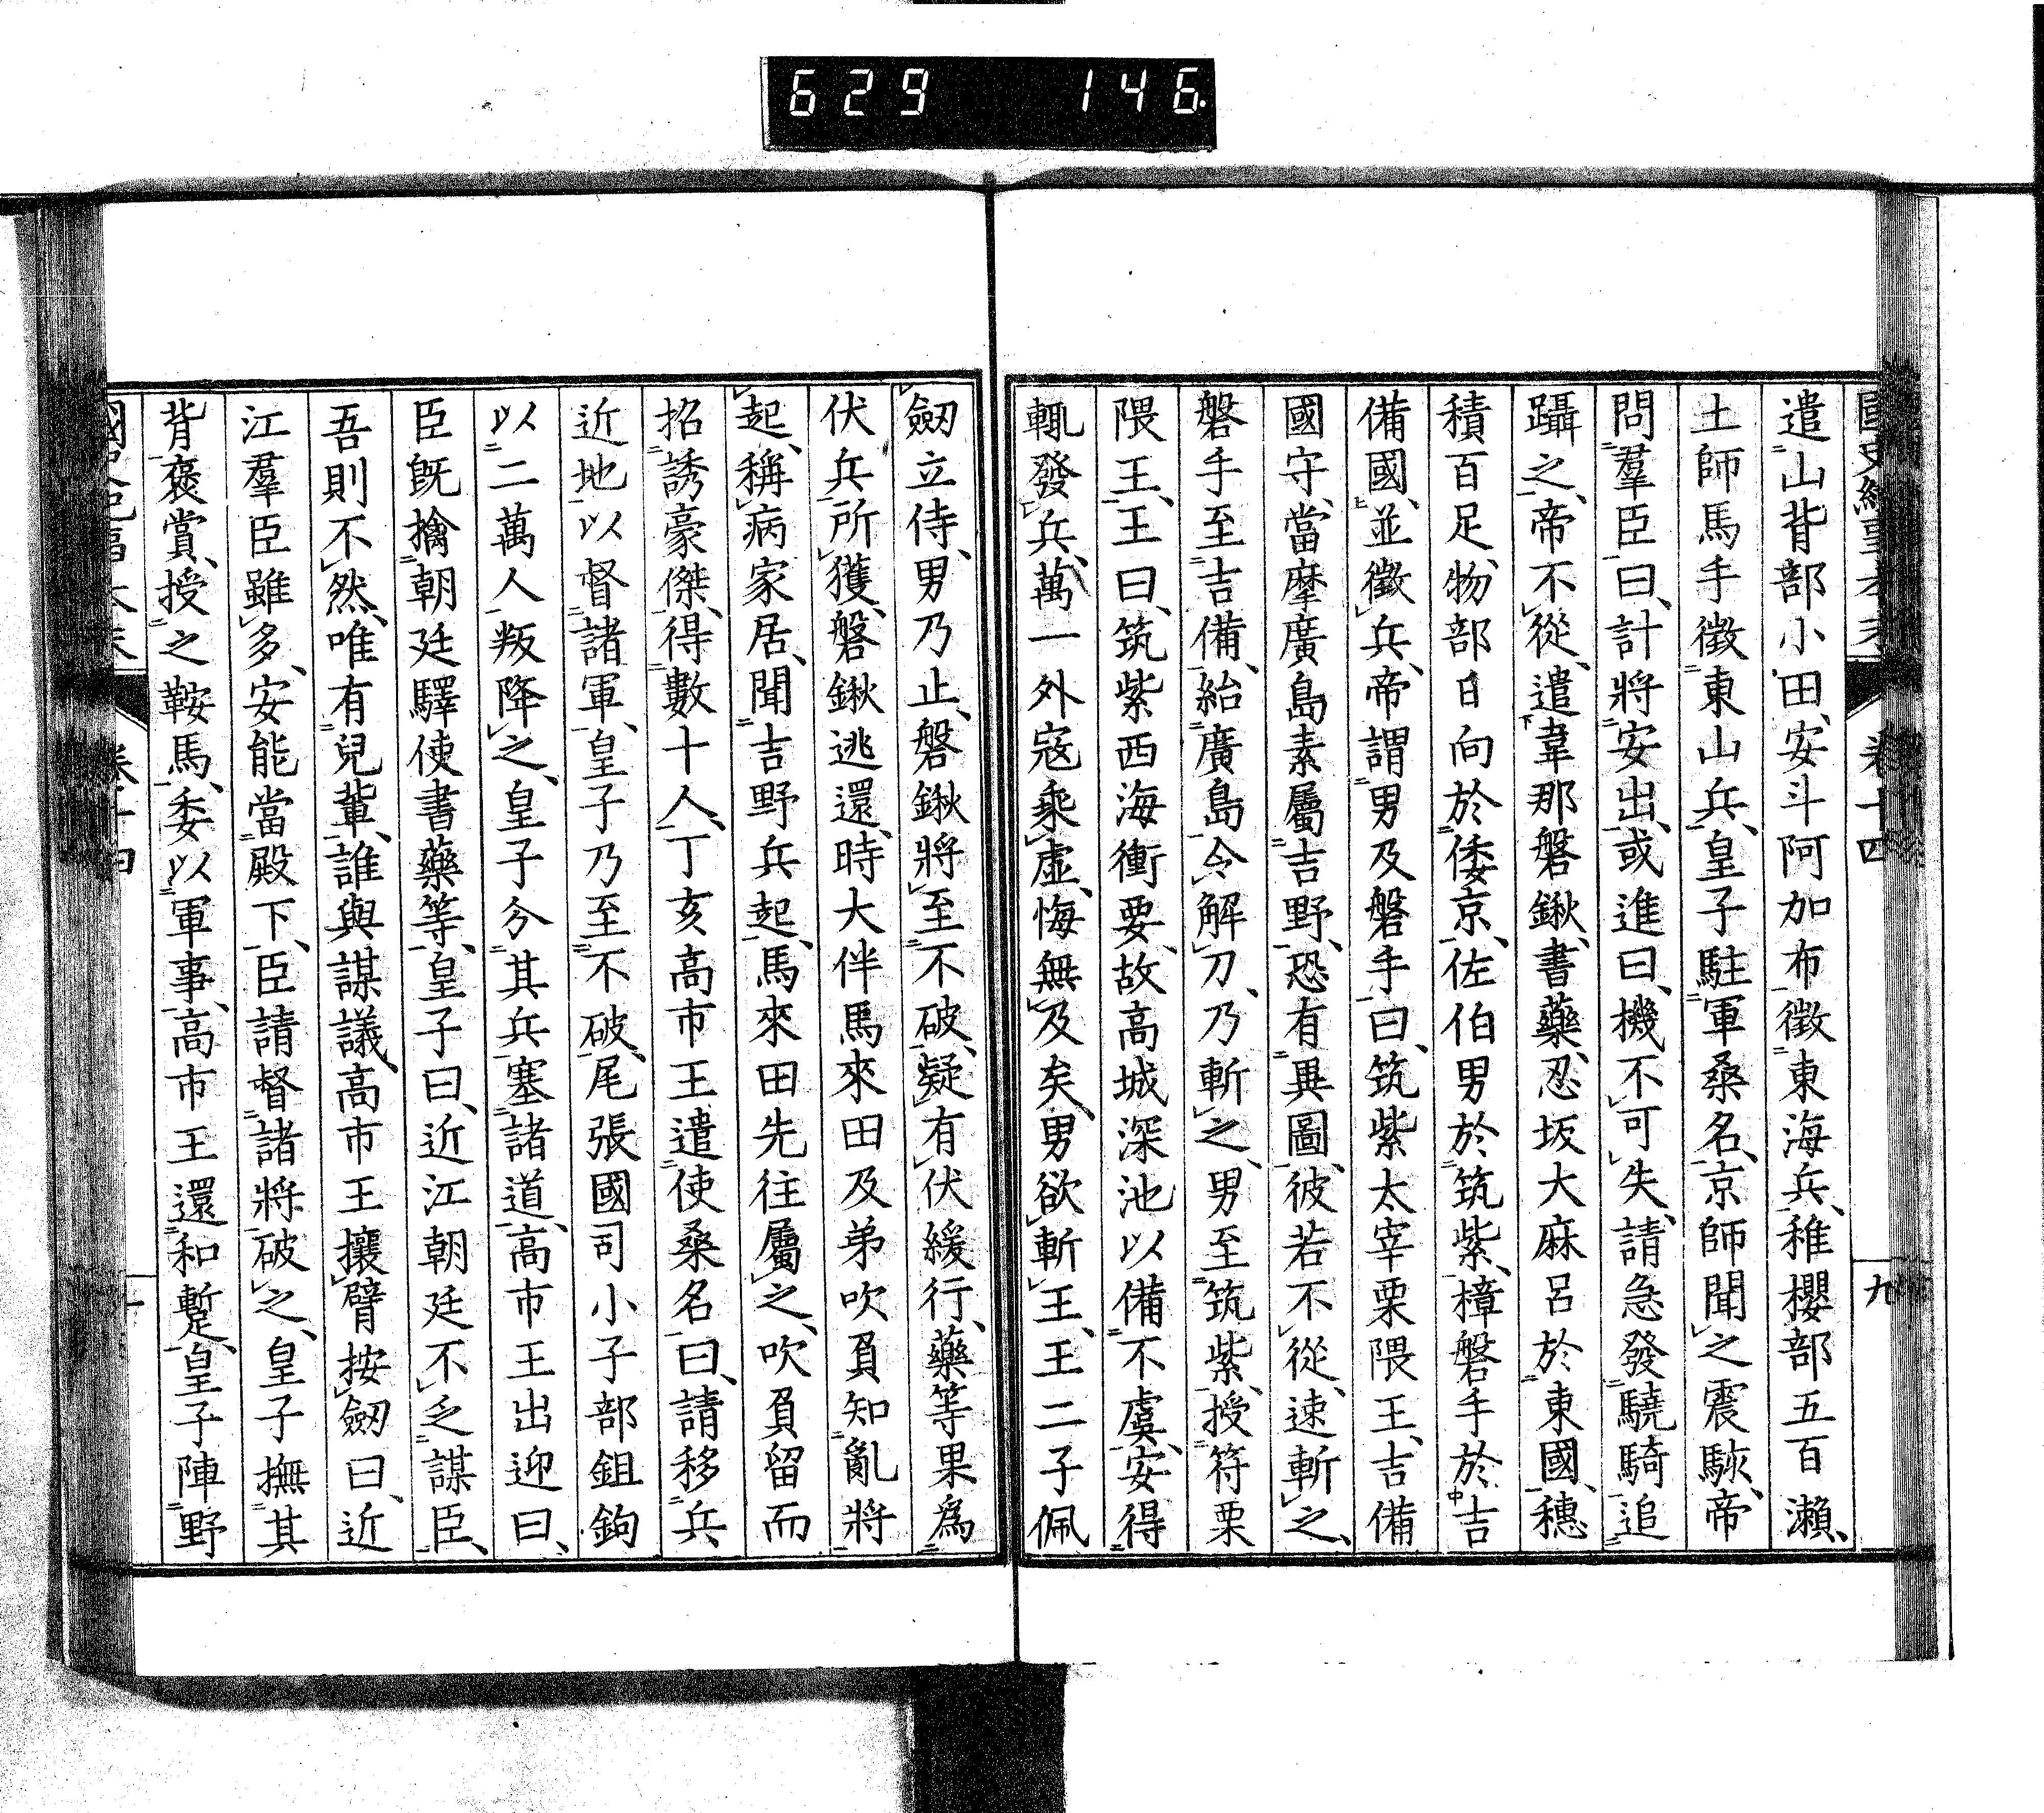 629 146
遣山背部小田、安斗阿加布徵東海兵、稚櫻部五百瀨、
土師馬手徵東山兵、皇子駐軍桑名、京師聞之震駭、帝
問羣臣曰、計將安出、或進曰、機不可失、請急發驍騎追
躡之、帝不從、遣韋那磐鍬、書藥、忍坂大麻呂於東國、穗
積百足、物部日向於倭京、佐伯男於筑紫、樟磐手於吉
備國、並徵兵、帝謂男及磐手曰、筑紫太宰栗隈王、吉備
國守、當摩廣島素屬吉野、恐有異圖、彼若不從、速斬之、
磐手至吉備、紿廣島、令解刀、乃斬之、男至筑紫、授符栗
隈王、王曰、筑紫西海衝要、故高城深池以備不虞、安得
輒發兵、萬一外寇乘虛、悔無及矣、男欲斬王、王二子佩
劒立侍、男乃止、磐鍬將至不破、疑有伏緩行、藥等果爲
伏兵所獲、磐鍬逃還、時大伴馬來田及弟吹負知亂將
起、稱病家居、聞吉野兵起、馬來田先往屬之、吹負留而
招誘豪傑、得數十人、丁亥高市王遣使桑名曰、請移兵
近地以督諸軍、皇子乃至不破、尾張國司小子部鉏鉤
以二萬人叛降之、皇子分其兵塞諸道、高市王出迎曰、
臣旣擒朝廷驛使書藥等、皇子曰、近江朝廷不乏謀臣、
吾則不然、唯有兒輩、誰與謀議、高市王攘臂按劒曰、近
江羣臣雖多、安能當殿下、臣請督諸將破之、皇子撫其
背褒賞、授之鞍馬、委以軍事、高市王還和蹔、皇子陣野
卷十四
九